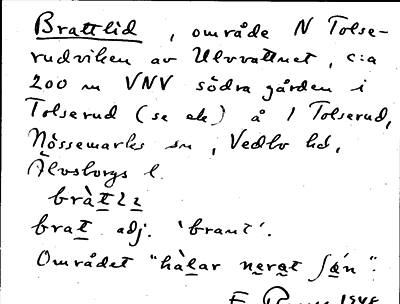 Brattlid, område N Tolse-
rudviken av Ulvvattnet, c:a
200 m VNV södra gården i
Tolserud (se ek) å 1 Tolserud,
Nössemarks sn, Vedbo hd,
Älvsborgs l.
brat adj. 'brant'.
Området "hàlar nerat sǿn".